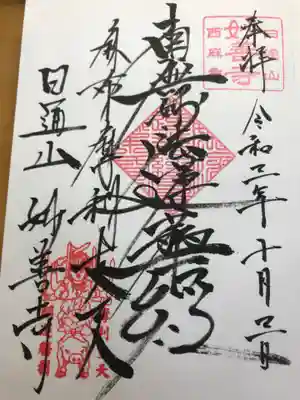 奉拝
令和二年十月二日
日通山
妙善寺
西麻布
南無妙法蓮華経
麻布摩利支天
日通山 妙善寺